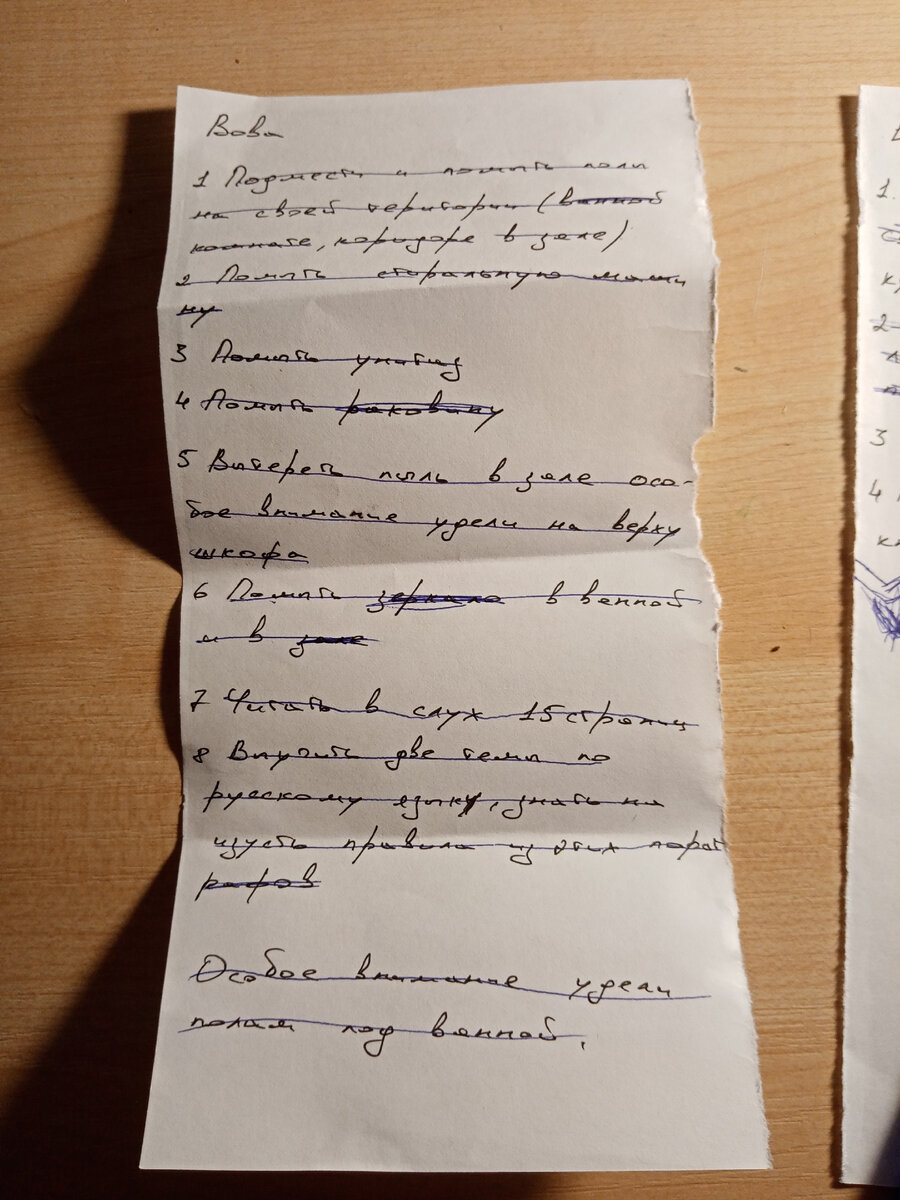 Вова
1 Подмести и помыть полы
на своей територии (ванной
комнате, коридоре в зале)
2 Помыть стиральную маши
ну
3 Помыть унитаз
4 Помыть раковину
5 Вытереть пыль в зале осо-
бое внимание удели на верху
шкофа
6 Помыть зеркало в венной
и в зале
7 Читать в слух 15 страниц
8 Выучить две темы по
русскому языку, знать на
изусть правила из этих параг
рафов
Особое внимание удели
полам под ванной.
1.
2
3
4